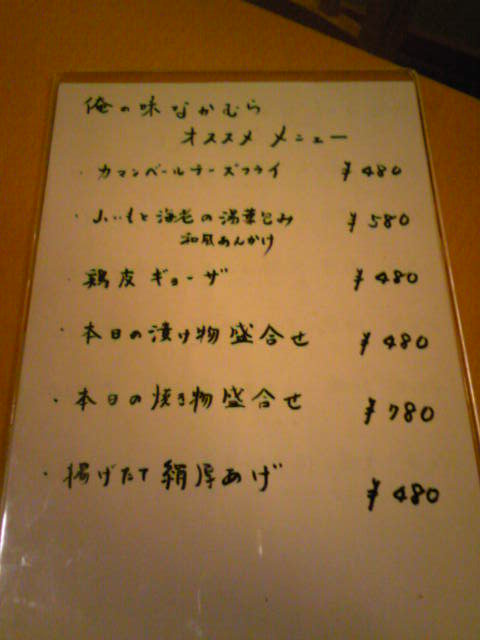 俺の味なかむら
オススメ メニュー
・カマンベールチーズフライ ¥480
・山いもと海老の湯葉包み ¥580
和風あんかけ
・鶏皮ギョーザ ¥480
・本日の漬け物盛合せ ¥480
・本日の焼き物盛合せ ¥780
・揚げたて絹厚あげ ¥480